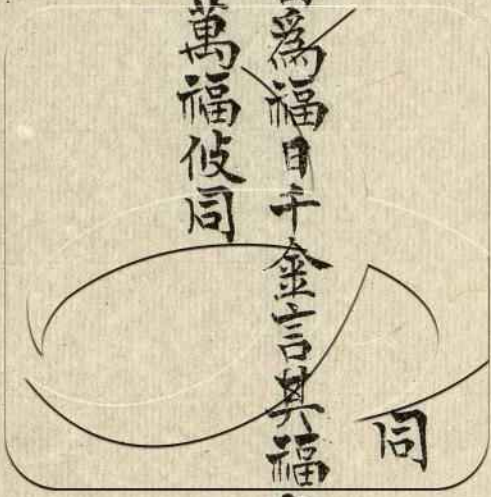 同
爲福日千金言其福
萬福攸同